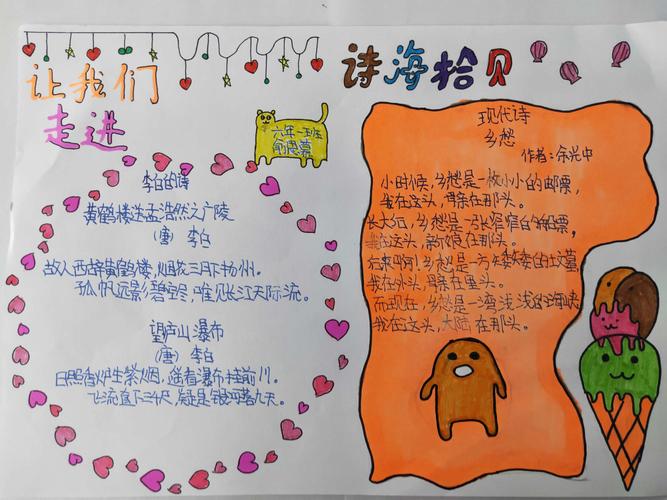 让我们
走进
诗海拾贝
六年一班
李白的诗
黄鹤楼送孟浩然之广陵
(唐) 李白
故人西辞黄鹤楼,烟花三月下扬州。
孤帆远影碧空尽,唯见长江天际流。
望庐山瀑布
(唐) 李白
日照香炉生紫烟,遥看瀑布挂前川。
飞流直下三千尺,疑是银河落九天。
现代诗
乡愁
作者:余光中
小时候,乡愁是一枚小小的邮票,
我在这头,母亲在那头。
长大后,乡愁是一张窄窄的船票,
我在这头,新娘在那头。
后来啊!乡愁是一方矮矮的坟墓,
我在外头,母亲在里头。
而现在,乡愁是一湾浅浅的海峡
我在这头,大陆在那头。